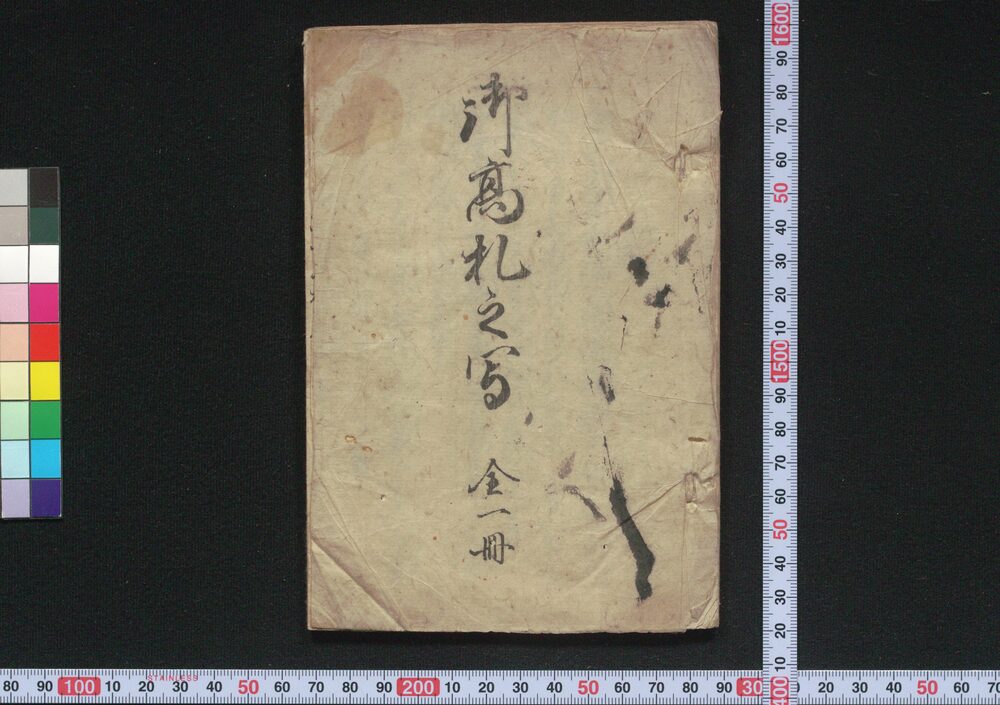 御高札之写 全一冊
1600
90
80
70
60
50
40
30
20
10
1500
90
80
70
60
50
40
30
20
10
400
80 90 100 10 20 30 40 50 60 70 80 90 200 10 20 30 40 50 60 70 80 90 30 10 20 30 40 50 60 70
STAINLESS